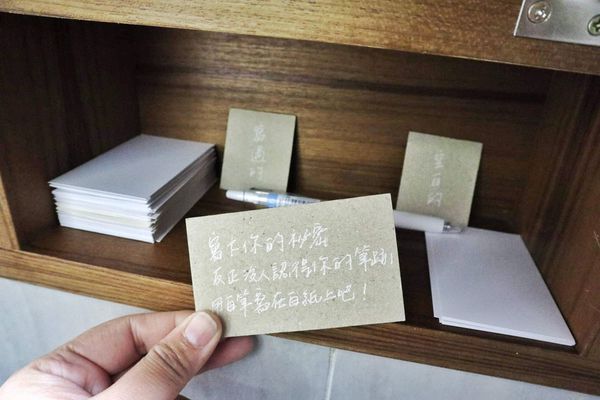 寫過的
空白的
寫下你的秘密
反正沒人認得你的筆跡!
用白筆寫在白紙上吧!